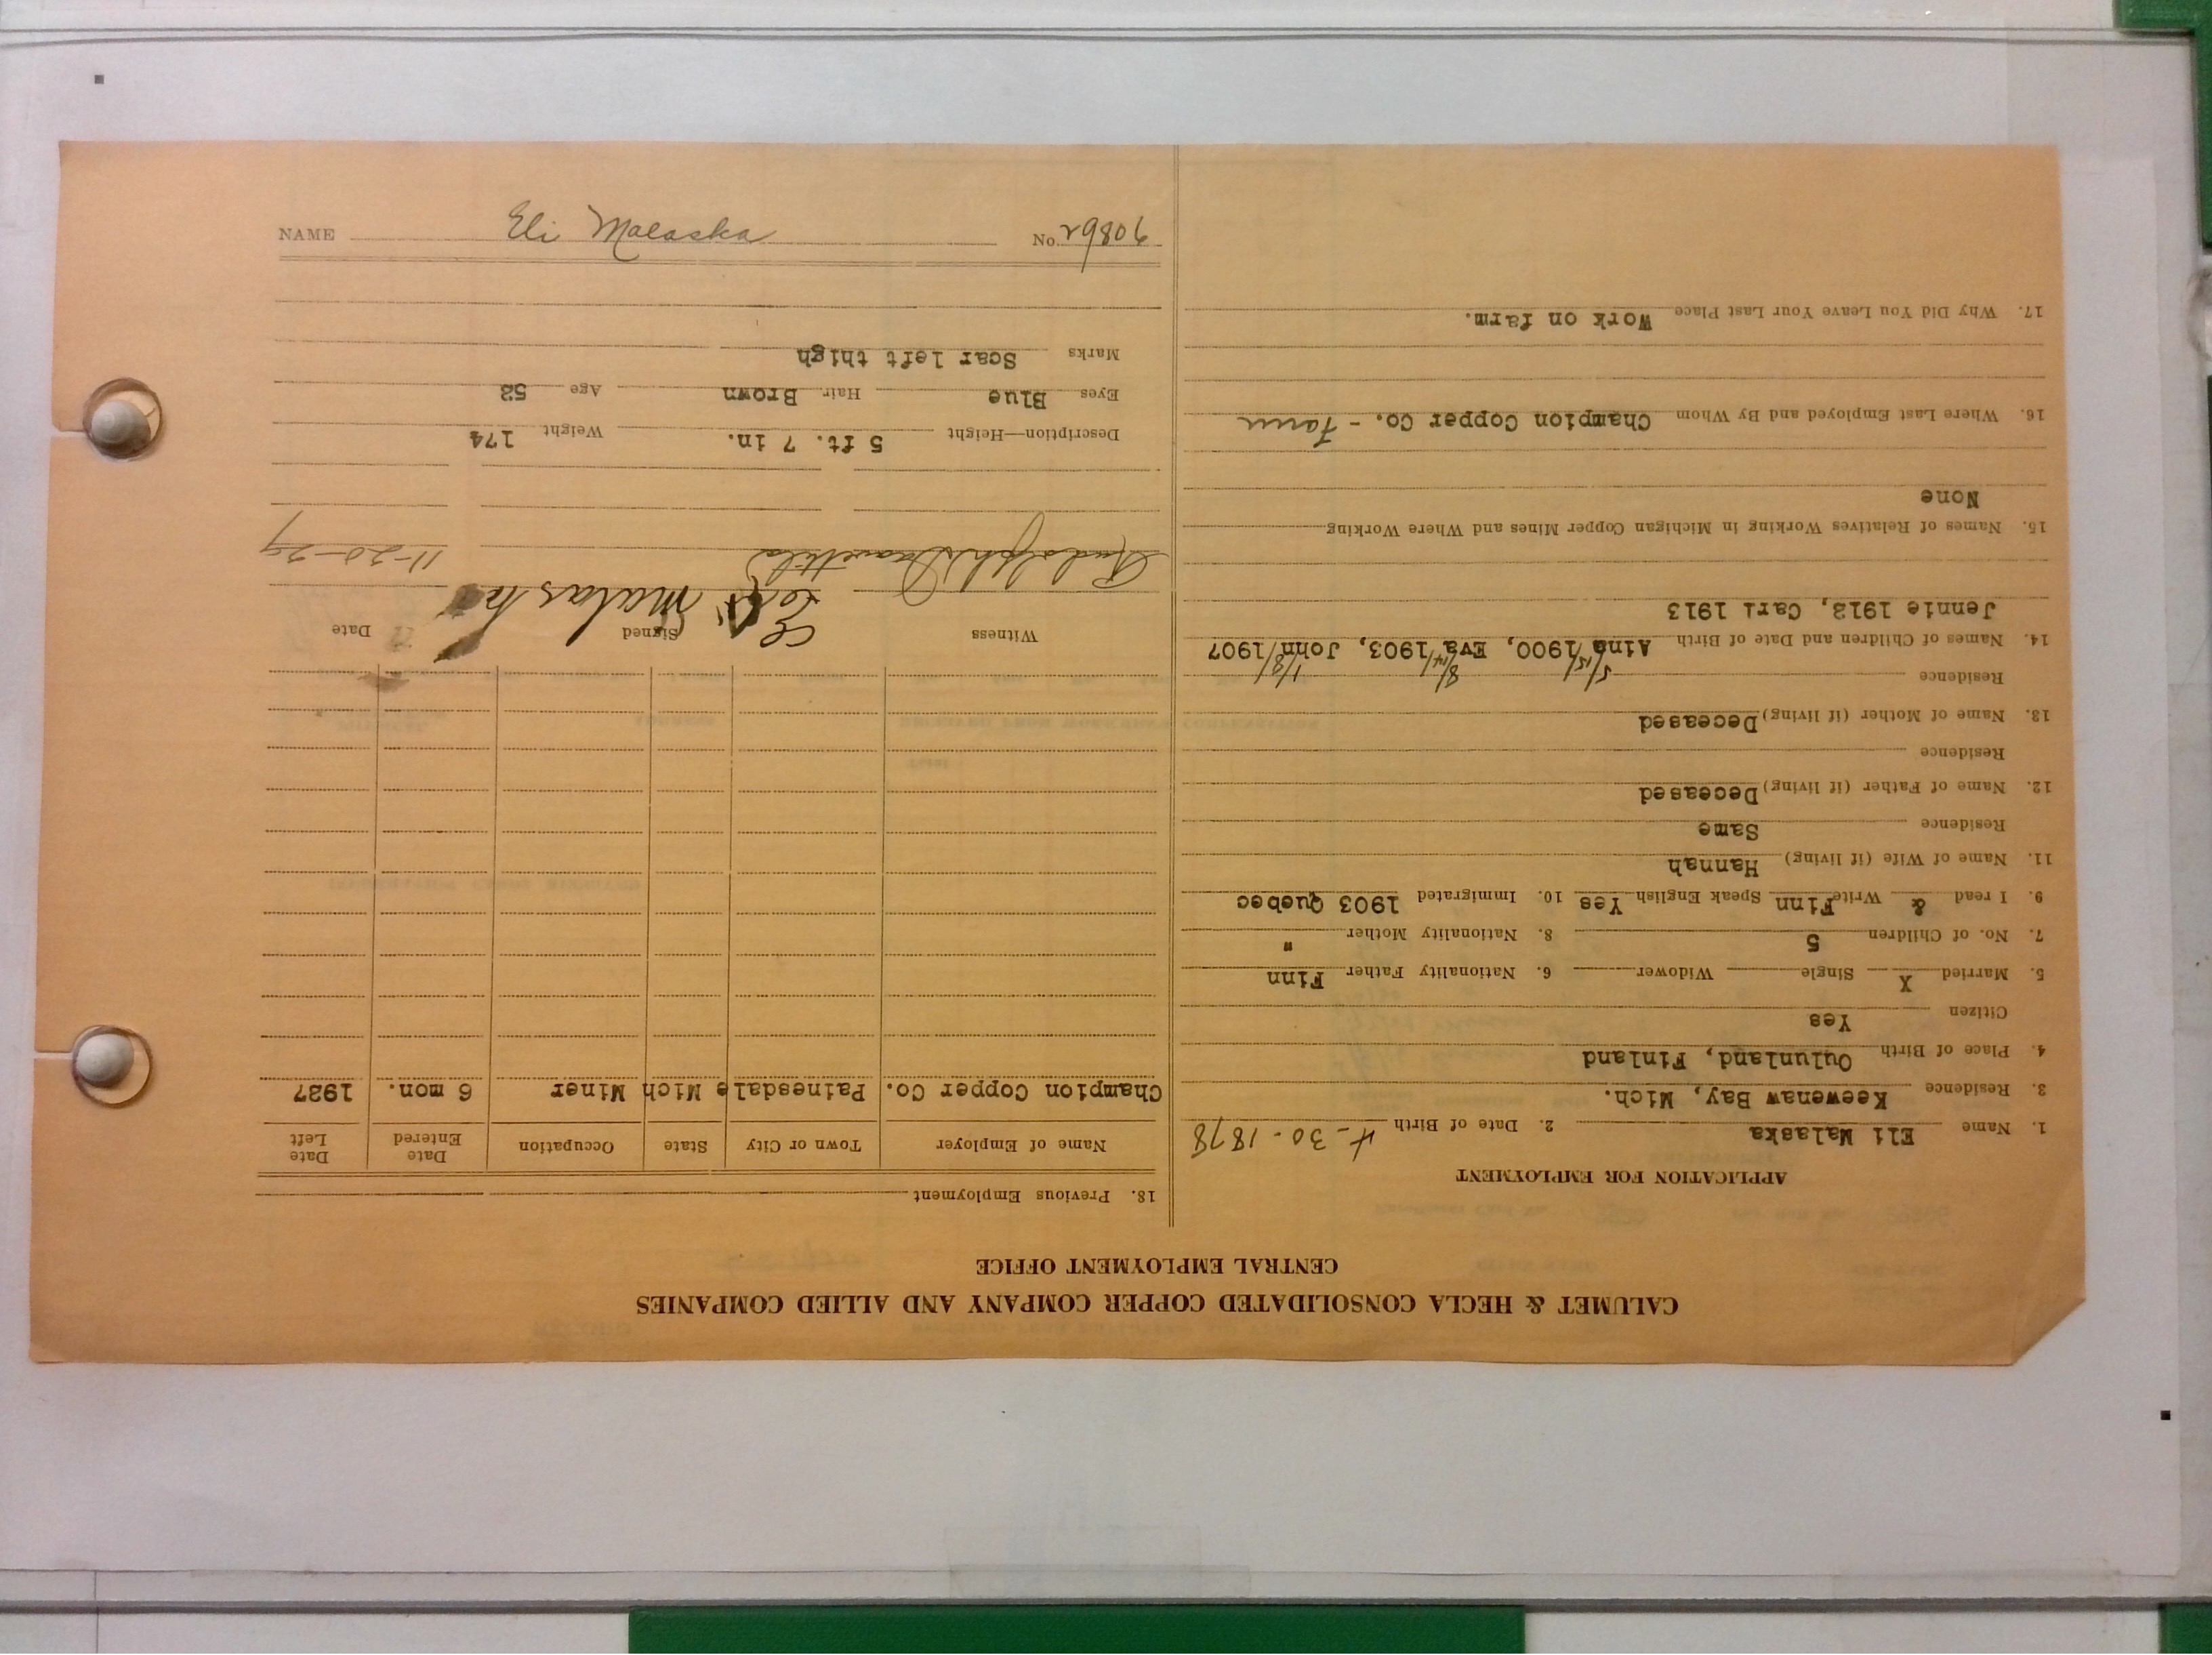 CALUMET & HECLA CONSOLIDATED COPPER COMPANY AND ALLIED COMPANIES
CENTRAL EMPLOYMENT OFFICE
APPLICATION FOR EMPLOYMENT
1. Name Eli Malaska 2. Date of Birth 4-30-1878
3. Residence Keewenaw Bay, Mich.
4. Place of Birth Oulunland, Finland
Citizen Yes
5. Married X Single Widower 6. Nationality Father Finn
7. No. of Children 5 8. Nationality Mother "
9. I read & Write Finn Speak English Yes 10. Immigrated 1903 Quebec
11. Name of Wife (if living) Hannah
Residence Same
12. Name of Father (if living) Deceased
Residence
13. Name of Mother (if living) Deceased
Residence
5/15/ 8/14/ 1/8/
14. Names of Children and Date of Birth Aina 1900, Eva 1903, John 1907
Jennie 1912, Carl 1913
15. Names of Relatives Working in Michigan Copper Mines and Where Working
None
16. Where Last Employed and By Whom Champion Copper Co. - Farm
17. Why Did You Leave Your Last Place Work on farm.
18. Previous Employment
Name of Employer Town or City State Occupation Date Entered Date Left
Champion Copper Co. Painesdale Mich Miner 6 mon. 1927
Witness Signed Date
Eli Malaska
Rudolph 11-20-29
Description—Height 5 ft. 7 in. Weight 174
Eyes Blue Hair Brown Age 52
Marks Scar left thigh
NAME Eli Malaska No. 29806